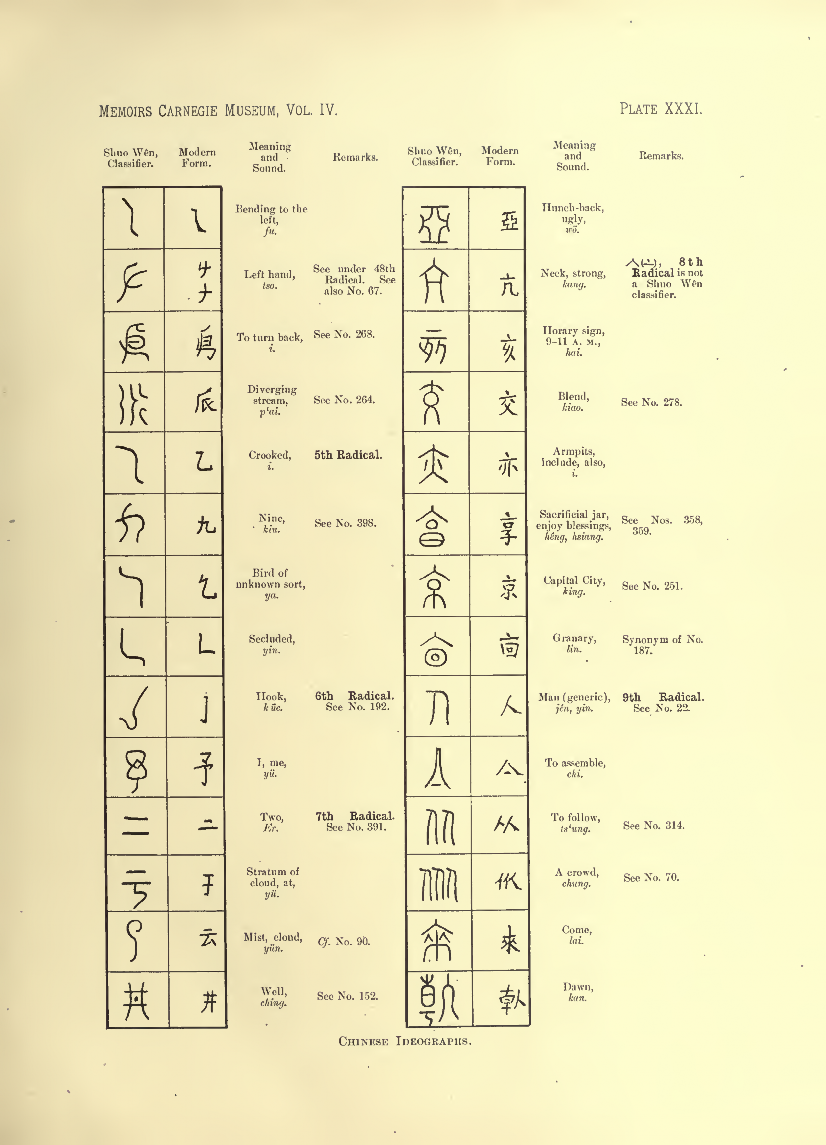 MEMOIRS CARNEGIE MUSEUM, VOL. IV.
PLATE XXXI.
Shuo Wên, Classifier.
Modern Form.
Meaning and Sound.
Remarks.
Bending to the
left,
fu.
Left hand,
tso.
See under 48th
Radical. See
also No. 67.
To turn back,
i.
See No. 268.
Diverging
stream,
p‘ai.
𠂢
See No. 264.
Crooked,
i.
乙
5th Radical.
Nine,
kiu.
九
See No. 398.
Bird of
unknown sort,
ya.
Secluded,
yin.
Hook,
küe.
亅
6th Radical.
See No. 192.
I, me,
yü.
予
Two,
Er.
二
7th Radical.
See No. 391.
Stratum of
cloud, at,
yü.
Mist, cloud,
yün.
云
Cf. No. 90.
Well,
ching.
井
See No. 152.
Shuo Wên, Classifier.
Modern Form.
Meaning and Sound.
Remarks.
亞
Hunch-back,
ugly,
亢
Neck, strong,
kang.
8th
Radical is not
a Shuo Wên
classifier.
亥
Horary sign,
9-11 A. M.,
hai.
交
Blend,
kiao.
See No. 278.
亦
Armpits,
include, also,
i.
享
Sacrificial jar,
enjoy blessings,
hêng, hsiang.
See Nos. 358,
359.
京
Capital City,
king.
See No. 251.
Granary,
lin.
Synonym of No.
187.
人
Man (generic),
jên, yin.
9th Radical.
See No. 22.
亼
To assemble,
chi.
从
To follow,
ts‘ung.
See No. 314.
A crowd,
chung.
See No. 70.
來
Come,
lai.
Dawn,
kan.
CHINESE IDEOGRAPHS.